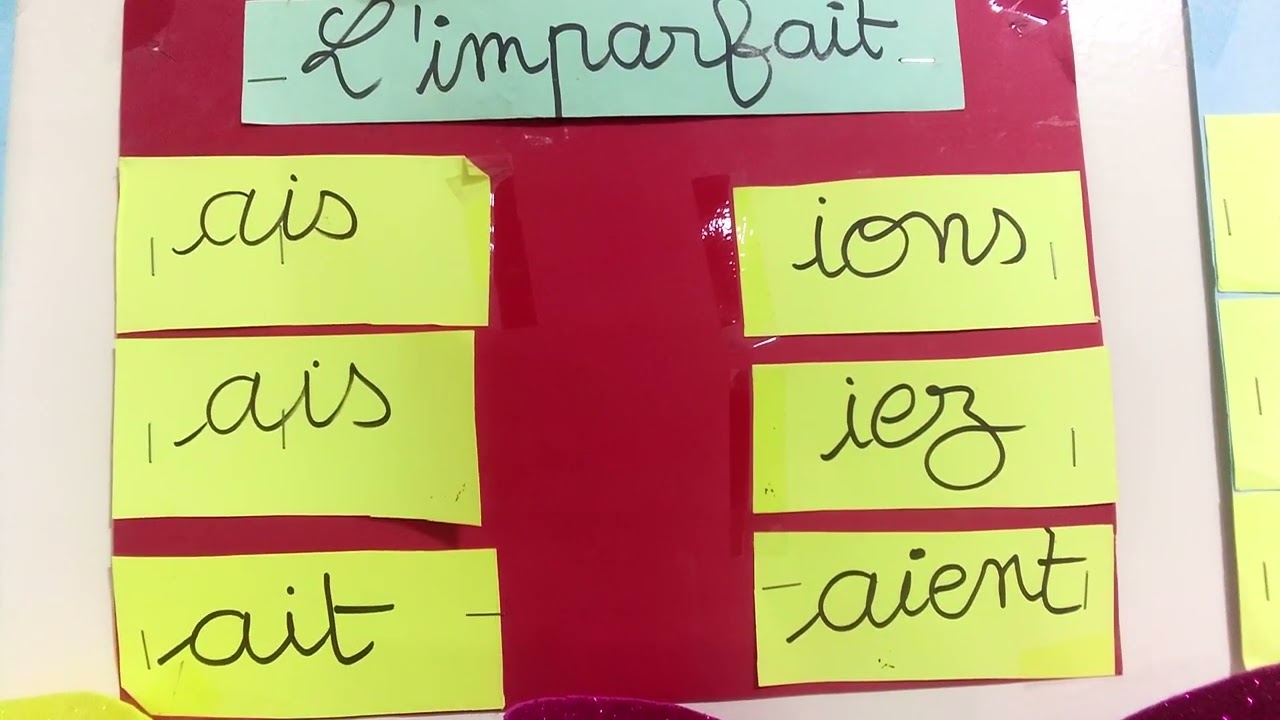 L'imparfait
ais
ais
ait
ions
iez
aient